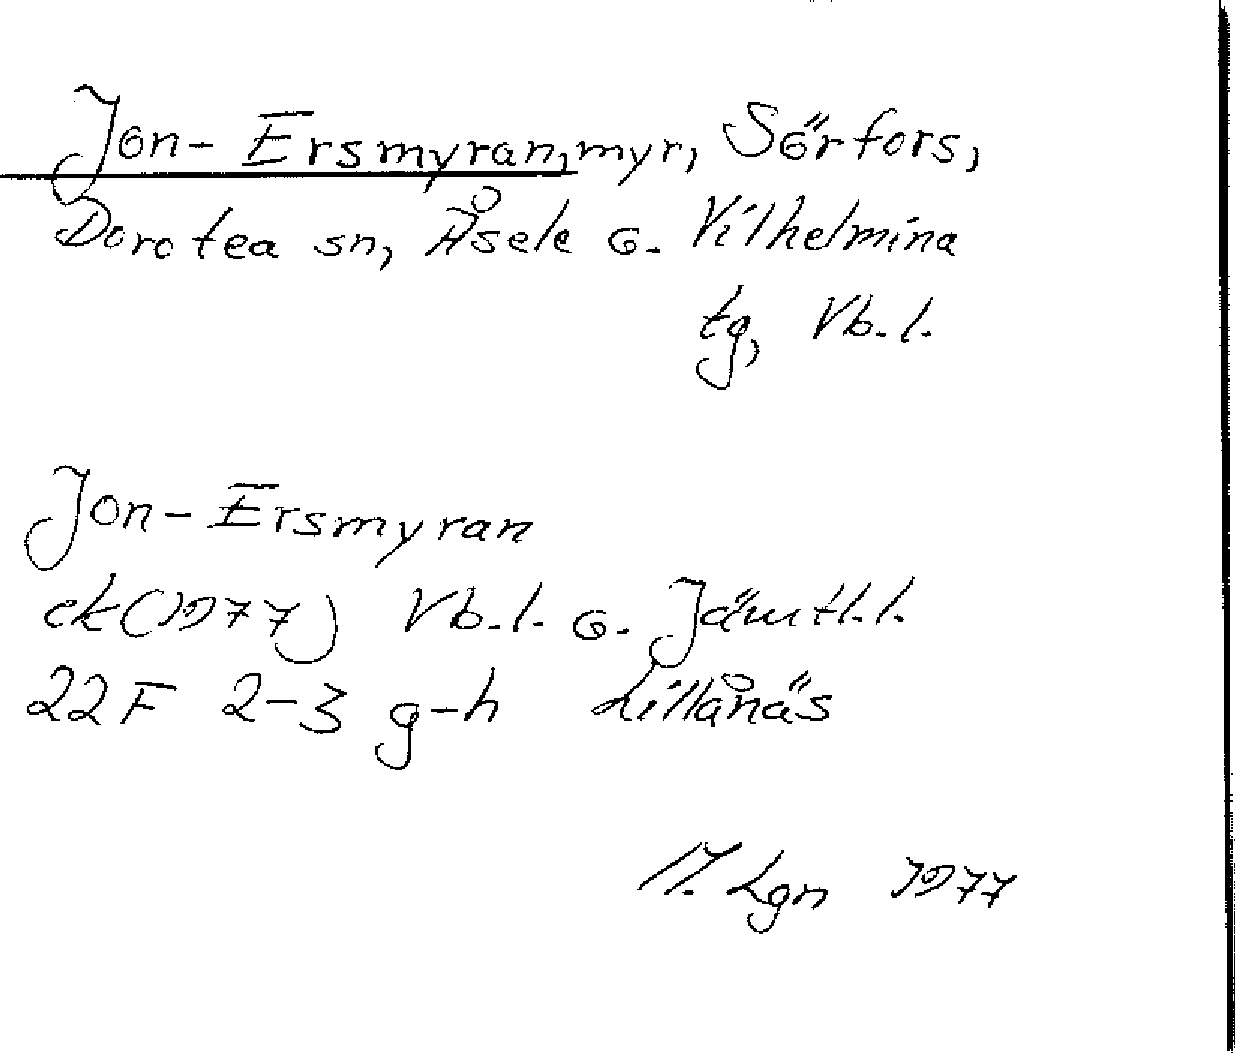 Jon-Ersmyran, myr, Sörfors,
Dorotea sn, Åsele o. Vilhelmina
tg, Vb.l.
Jon-Ersmyran
ek (1977) Vb.l. o. Jämtl.l.
22F 2-3 g-h Lillånäs
Lgn 1977